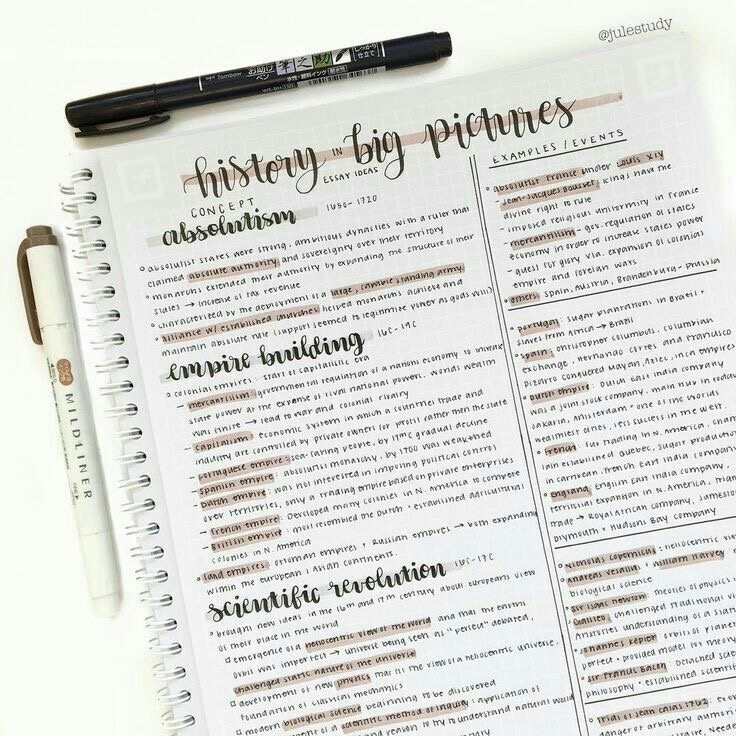 @julestudy
Tombow お助けペン 筆之助 しっかり仕立て
水性・顔料インク 耐水性
MILDLINER
history IN big pictures
ESSAY IDEAS
CONCEPT
absolutism 1650-1720
absolutist states were strong, ambitious dynasties with a ruler that
claimed absolute authority and sovereignty over their territory
monarchs extended their authority by expanding the structure of their
states → increase of tax revenue
characterized by the deployment of large, capable standing army
alliance w/ established churches helped monarchs achieve and
maintain absolute rule (support seemed to legitimize power as gods will)
empire building 16C-19C
colonial empires: start of capitalistic era
→ mercantilism: governmental regulation of a nations economy to increase
state power at the expense of rival national powers. worlds wealth
was finite → lead to war and colonial rivalry
capitalism: economic system in which a countries trade and
industry are controlled by private owners (for profit) rather than the state
- portuguese empire: sea-faring people, by 17th C gradual decline
- spanish empire: absolutist monarchy, by 1700 was weakened
- Dutch empire: was not interested in imposing political control
over territories, only a trading empire based on private enterprises
- French empire: developed many colonies in N. America to compete
- British empire: most resembled the Dutch + established agricultural
colonies in N. America
land empires: ottoman empires + Russian empires → both expanding
within the european + Asian continents.
scientific revolution 16C-17C
brought new ideas in the 16th and 17th century about europeans view
of their place in the world
emergence of a heliocentric view of the world and that the earths
orbit was imperfect → universe being seen as "perfect" debated.
challenged static nature of the universe
development of new physics that fit the view of a heliocentric universe.
foundation of classical mechanics
modern biological science beginning to be discovered
scientific method of inquiry: application of
and reason to try to understand natural world
EXAMPLES / EVENTS
absolutist France under Louis XIV
- Jean-Jacques Bousset: kings have the
divine right to rule
- imposed religious uniformity in France
- mercantilism - gov. regulation of states
economy in order to increase states power
- quest for glory via. expansion of colonial
empire and foreign wars
others: Spain, Austria, Brandenburg-Prussia
portugal: sugar plantations in Brazil +
slaves from Africa → Brazil
spain: christopher columbus, columbian
exchange, Hernando cortes and Francisco
Pizarro conquered Mayan, Aztec, inca empires
Dutch empire: Dutch east india company
was a joint stock company. main hub in today
Jakarta, Amsterdam "one of the worlds
wealthiest cities, its success in the west.
French: fur trading in N. America, cham
lain established Quebec, sugar production
in carribean. french East India company
England: English East india company,
territorial expansion in N. America, triangular
trade → Royal African company, Jamestown
plymouth + Hudsons Bay company
Nicholas copernicus: heliocentric view
Andreas vesalius + william Harvey
biological science
sir isaac newton: theories of physics
Galileo: challenged traditional
Aristotles understanding of a static
Johannes kepler: orbits of planets
perfect + provided model for
sir Francis Bacon: Detached science
philosophy + established scientific
Trial of Jean Calas 1762:
danger of arbitrary